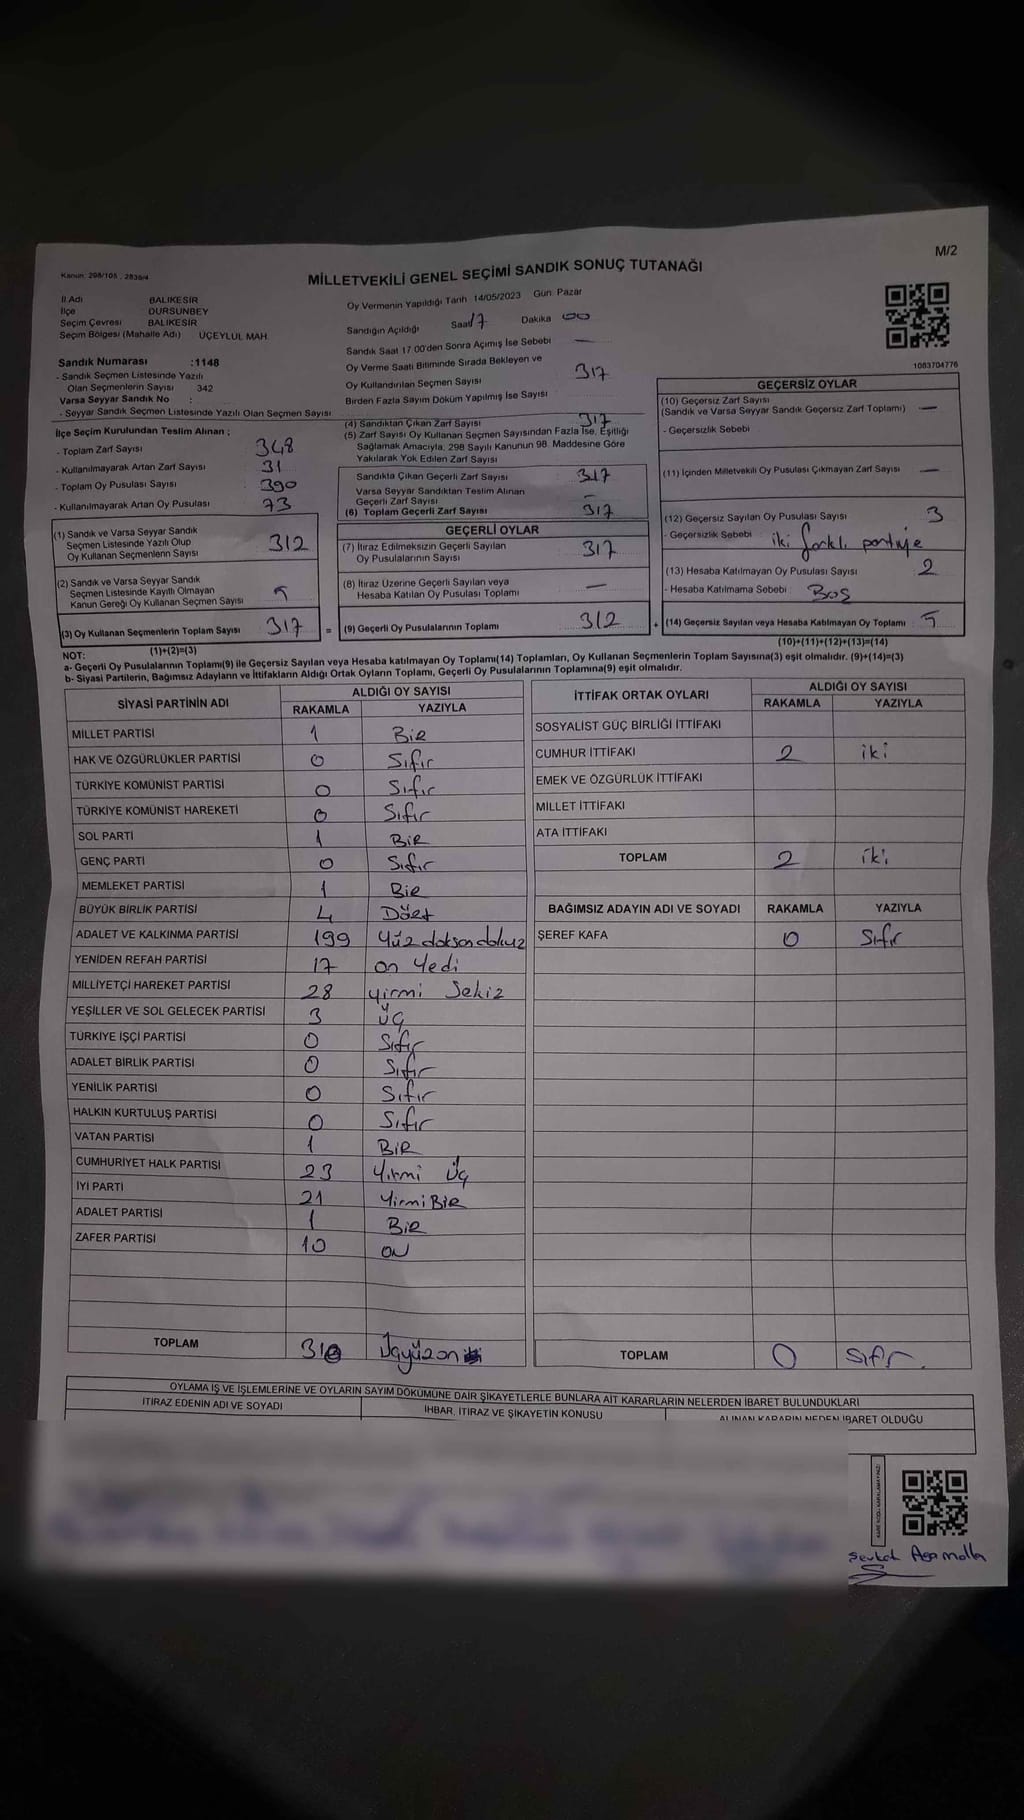 M/2
Kanun: 298/105 , 2839/4
MİLLETVEKİLİ GENEL SEÇİMİ SANDIK SONUÇ TUTANAĞI
İl Adı BALIKESİR
İlçe DURSUNBEY
Seçim Çevresi BALIKESİR
Seçim Bölgesi (Mahalle Adı) ÜÇEYLÜL MAH.
Sandık Numarası :1148
- Sandık Seçmen Listesinde Yazılı
Olan Seçmenlerin Sayısı 342
Varsa Seyyar Sandık No :
- Seyyar Sandık Seçmen Listesinde Yazılı Olan Seçmen Sayısı
İlçe Seçim Kurulundan Teslim Alınan ;
- Toplam Zarf Sayısı 348
- Kullanılmayarak Artan Zarf Sayısı 31
- Toplam Oy Pusulası Sayısı 390
- Kullanılmayarak Artan Oy Pusulası 73
(1) Sandık ve Varsa Seyyar Sandık
Seçmen Listesinde Yazılı Olup
Oy Kullanan Seçmenlerin Sayısı 312
(2) Sandık ve Varsa Seyyar Sandık
Seçmen Listesinde Kayıtlı Olmayan
Kanun Gereği Oy Kullanan Seçmen Sayısı 5
(3) Oy Kullanan Seçmenlerin Toplam Sayısı 317 =
(1)+(2)=(3)
Oy Vermenin Yapıldığı Tarih 14/05/2023 Gün: Pazar
Sandığın Açıldığı Saat 17 Dakika 00
Sandık Saat 17.00'den Sonra Açımış İse Sebebi —
Oy Verme Saati Bitiminde Sırada Bekleyen ve
Oy Kullandırılan Seçmen Sayısı 317
Birden Fazla Sayım Döküm Yapılmış İse Sayısı
(4) Sandıktan Çıkan Zarf Sayısı 317
(5) Zarf Sayısı Oy Kullanan Seçmen Sayısından Fazla İse, Eşitliği
Sağlamak Amacıyla, 298 Sayılı Kanunun 98. Maddesine Göre
Yakılarak Yok Edilen Zarf Sayısı
Sandıkta Çıkan Geçerli Zarf Sayısı 317
Varsa Seyyar Sandıktan Teslim Alınan
Geçerli Zarf Sayısı —
(6) Toplam Geçerli Zarf Sayısı 317
GEÇERLİ OYLAR
(7) İtiraz Edilmeksizin Geçerli Sayılan
Oy Pusulalarının Sayısı 317
(8) İtiraz Üzerine Geçerli Sayılan veya
Hesaba Katılan Oy Pusulası Toplamı —
(9) Geçerli Oy Pusulalarının Toplamı 312 +
1083704776
GEÇERSİZ OYLAR
(10) Geçersiz Zarf Sayısı
(Sandık ve Varsa Seyyar Sandık Geçersiz Zarf Toplamı) —
- Geçersizlik Sebebi :
(11) İçinden Milletvekili Oy Pusulası Çıkmayan Zarf Sayısı —
(12) Geçersiz Sayılan Oy Pusulası Sayısı 3
- Geçersizlik Sebebi : iki farklı partiye
(13) Hesaba Katılmayan Oy Pusulası Sayısı 2
- Hesaba Katılmama Sebebi : Boş
(14) Geçersiz Sayılan veya Hesaba Katılmayan Oy Toplamı 5
(10)+(11)+(12)+(13)=(14)
NOT:
a- Geçerli Oy Pusulalarının Toplamı(9) ile Geçersiz Sayılan veya Hesaba katılmayan Oy Toplamı(14) Toplamları, Oy Kullanan Seçmenlerin Toplam Sayısına(3) eşit olmalıdır. (9)+(14)=(3)
b- Siyasi Partilerin, Bağımsız Adayların ve İttifakların Aldığı Ortak Oyların Toplamı, Geçerli Oy Pusulalarının Toplamına(9) eşit olmalıdır.
SİYASİ PARTİNİN ADI ALDIĞI OY SAYISI
RAKAMLA YAZIYLA
MİLLET PARTİSİ 1 Bir
HAK VE ÖZGÜRLÜKLER PARTİSİ 0 Sıfır
TÜRKİYE KOMÜNİST PARTİSİ 0 Sıfır
TÜRKİYE KOMÜNİST HAREKETİ 0 Sıfır
SOL PARTİ 1 BİR
GENÇ PARTİ 0 Sıfır
MEMLEKET PARTİSİ 1 Bir
BÜYÜK BİRLİK PARTİSİ 4 Dört
ADALET VE KALKINMA PARTİSİ 199 Yüz doksan dokuz
YENİDEN REFAH PARTİSİ 17 on Yedi
MİLLİYETÇİ HAREKET PARTİSİ 28 yirmi Sekiz
YEŞİLLER VE SOL GELECEK PARTİSİ 3 üç
TÜRKİYE İŞÇİ PARTİSİ 0 Sıfır
ADALET BİRLİK PARTİSİ 0 Sıfır
YENİLİK PARTİSİ 0 Sıfır
HALKIN KURTULUŞ PARTİSİ 0 Sıfır
VATAN PARTİSİ 1 BİR
CUMHURİYET HALK PARTİSİ 23 Yirmi Üç
İYİ PARTİ 21 YirmiBir
ADALET PARTİSİ 1 Bir
ZAFER PARTİSİ 10 ON
TOPLAM 310 Üçyüzon
İTTİFAK ORTAK OYLARI ALDIĞI OY SAYISI
RAKAMLA YAZIYLA
SOSYALİST GÜÇ BİRLİĞİ İTTİFAKI
CUMHUR İTTİFAKI 2 iki
EMEK VE ÖZGÜRLÜK İTTİFAKI
MİLLET İTTİFAKI
ATA İTTİFAKI
TOPLAM 2 iki
BAĞIMSIZ ADAYIN ADI VE SOYADI RAKAMLA YAZIYLA
ŞEREF KAFA 0 Sıfır
TOPLAM 0 Sıfır.
OYLAMA İŞ VE İŞLEMLERİNE VE OYLARIN SAYIM DÖKÜMÜNE DAİR ŞİKAYETLERLE BUNLARA AİT KARARLARIN NELERDEN İBARET BULUNDUKLARI
İTİRAZ EDENİN ADI VE SOYADI İHBAR, İTİRAZ VE ŞİKAYETİN KONUSU ALINAN KARARIN NEDEN İBARET OLDUĞU
KARE KODU KARALAMAYINIZ!
Şevket Agamolla